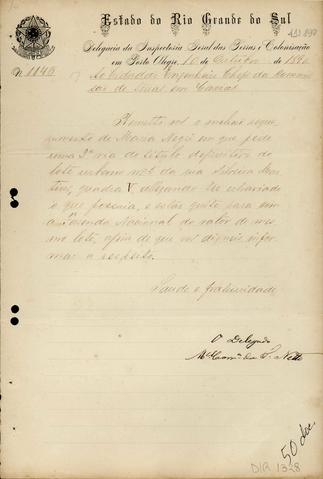 Estado do Rio Grande do Sul
Delegacia da Inspectoria Geral das Terras e Colonisação
em Porto Alegre, 10 de Outubro de 1890
N. 1140
Ao Cidadão Engenheiro Chefe da Commis
são de Terras em Caxias
Remetto-vos o incluso reque
rimento de Maria em que pede
uma 2ª via do titulo definitivo do
lote urbano nº da rua Silveira Mar
tins, quadra V, allegando ter extraviado
o que possuia, e estar quite para com
a Fazenda Nacional do valor do mes
mo lote, afim de que vos digneis infor
mar a respeito.
Saude e fraternidade
O Delegado
50 doc
DIR 1328